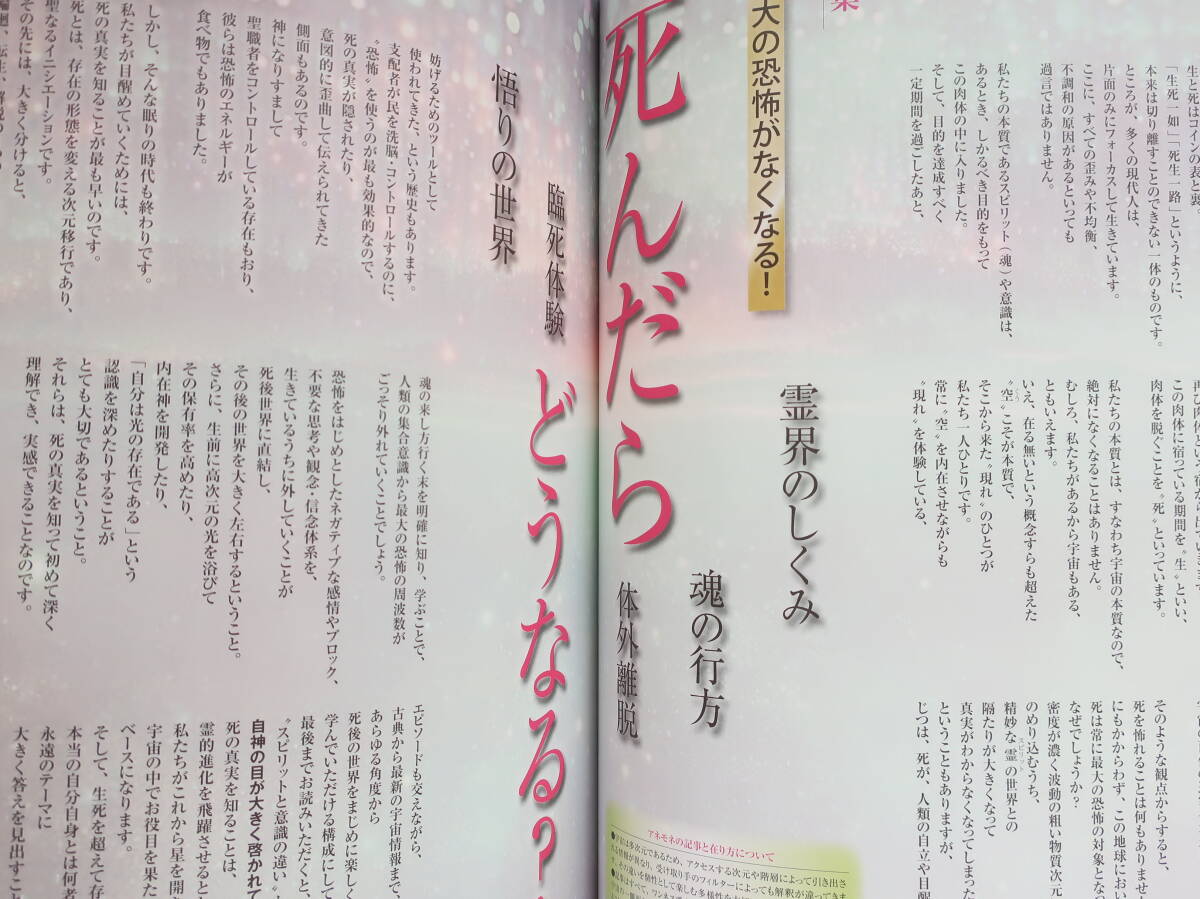 集
大の恐怖がなくなる！
死んだら
どうなる？
霊界のしくみ
魂の行方
体外離脱
臨死体験
悟りの世界
生と死はコインの表と裏
「生死一如」「死生一路」というように、
本来は切り離すことのできない一体のものです。
ところが、多くの現代人は、
片面のみにフォーカスして生きています。
ここに、すべての歪みや不均衡、
不調和の原因があるといっても
過言ではありません。
私たちの本質であるスピリット（魂）や意識は、
あるとき、しかるべき目的をもって
この肉体の中に入りました。
そして、目的を達成すべく
一定期間を過ごしたあと、
この肉体に宿っている期間を〝生〟といい、
肉体を脱ぐことを〝死〟といっています。
私たちの本質とは、すなわち宇宙の本質なので、
絶対になくなることはありません。
むしろ、私たちがあるから宇宙もある、
ともいえます。
いえ、在る無いという概念すらも超えた
〝空〟こそが本質で、
そこから来た〝現れ〟のひとつが
私たち一人ひとりです。
常に〝空〟を内在させながらも
〝現れ〟を体験している、
そのような観点からすると、
死を怖れることは何もありませ
にもかかわらず、この地球におい
死は常に最大の恐怖の対象となっ
なぜでしょうか？
密度が濃く波動の粗い物質次元
のめり込むうち、
精妙な霊の世界との
スピリッツ
隔たりが大きくなって
真実がわからなくなってしまった
ということもありますが、
じつは、死が、人類の自立や目醒
アネモネの記事と在り方について
●宇宙は多次元であるため、アクセスする次元や階層によって引き出さ
れる情報が異なり、受け取り手のフィルターによっても解釈が違ってきま
す。その違いを個性として楽しむ多様性を
妨げるためのツールとして
使われてきた、という歴史もあります。
支配者が民を洗脳・コントロールするのに、
〝恐怖〟を使うのが最も効果的なので、
死の真実が隠されたり、
意図的に歪曲して伝えられてきた
側面もあるのです。
神になりすまして
聖職者をコントロールしている存在もおり、
彼らは恐怖のエネルギーが
食べ物でもありました。
しかし、そんな眠りの時代も終わりです。
私たちが目醒めていくためには、
死の真実を知ることが最も早いのです。
死とは、存在の形態を変える次元移行であり、
聖なるイニシエーションです。
その先には、大きく分けると、
魂の来し方行く末を明確に知り、学ぶことで、
人類の集合意識から最大の恐怖の周波数が
ごっそり外れていくことでしょう。
恐怖をはじめとしたネガティブな感情やブロック、
不要な思考や観念・信念体系を、
生きているうちに外していくことが
死後世界に直結し、
その後の世界を大きく左右するということ。
さらに、生前に高次元の光を浴びて
その保有率を高めたり、
内在神を開発したり、
「自分は光の存在である」という
認識を深めたりすることが
とても大切であるということ。
それらは、死の真実を知って初めて深く
理解でき、実感できることなのです。
エピソードも交えながら、
古典から最新の宇宙情報まで、
あらゆる角度から
死後の世界をまじめに楽しく
学んでいただける構成にして
最後までお読みいただくと、
〝スピリットと意識の違い〟
自神の目が大きく啓かれて
死の真実を知ることは、
霊的進化を飛躍させると
私たちがこれから星を開き
宇宙の中でお役目を果た
ベースになります。
そして、生死を超えて存
本当の自分自身とは何者
永遠のテーマに
大きく答えを見出すこと